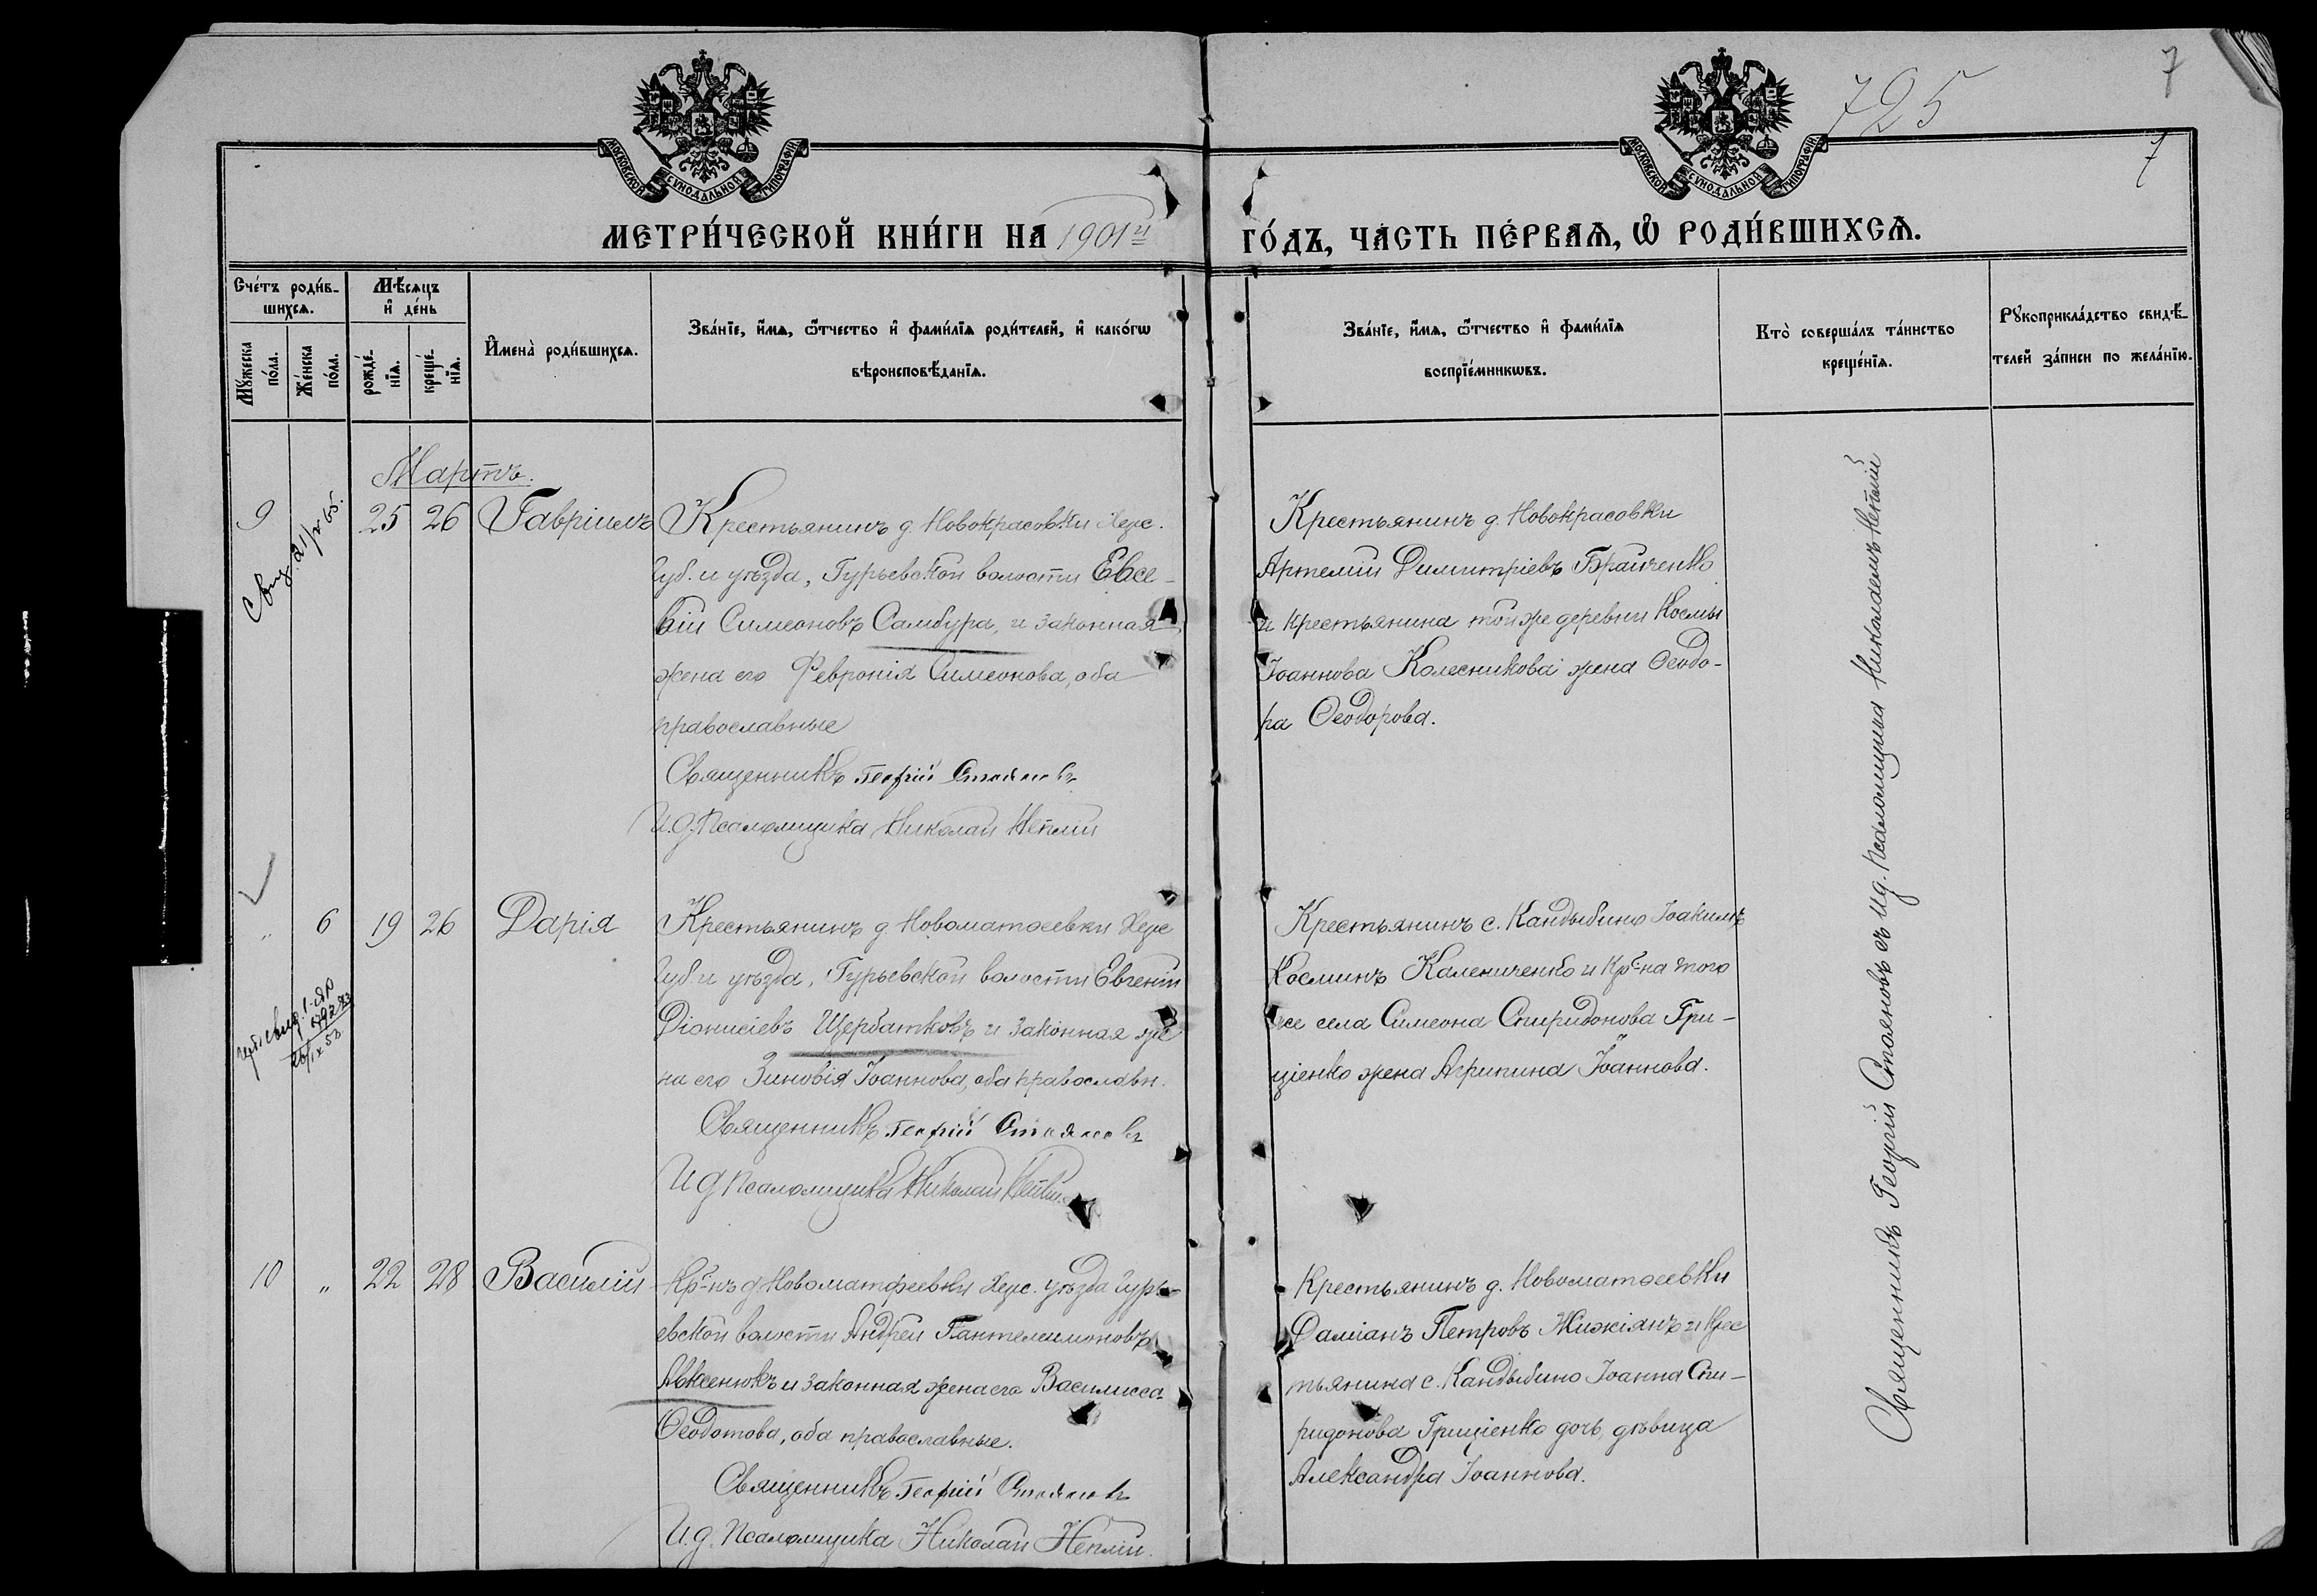 725
7
7
МОСКОВСКОЙ СѴНОДАЛЬНОЙ ТИПОГРАФІИ
МОСКОВСКОЙ СѴНОДАЛЬНОЙ ТИПОГРАФІИ
МЕТРИ́ЧЕСКОЙ КНИ́ГИ НА 1901й ГО́ДЪ, ЧА́СТЬ ПЕ́РВАѦ, Ѡ РОДИ́ВШИХСѦ.
Сче́тъ роди́в-
шихсѧ.
Мꙋ́жеска по́ла.
Же́нска по́ла.
Мѣ́сѧцъ
и҆ де́нь
рожде́-нїѧ.
креще́-нїѧ.
И҆мена̀ роди́вшихсѧ.
Зва́нїе, и҆́мѧ, ѻ҆́тчество и҆ фами́лїѧ роди́телей, и҆ како́гѡ
вѣроисповѣ́данїѧ.
Зва́нїе, и҆́мѧ, ѻ҆́тчество и҆ фами́лїѧ
воспрїе́мникѡвъ.
Кто̀ соверша́лъ та́инство
креще́нїѧ.
Рꙋкоприкла́дство свидѣ́-
телей за́писи по жела́нїю.
Мартъ.
9 25 26 Гавріилъ
Крестьянинъ д. Новокрасовки Херс.
Губ. и уѣзда, Гурьевской волости Евсе-
вій Симеоновъ Самбура, и законная
жена его Февронія Симеонова, оба
православные
Священникъ Георгій Стояновъ
И.д. Псаломщика Николай
Крестьянинъ д. Новокрасовки
Артемій Димитріевъ Брайченко
и крестьянина той же деревни Космы
Іоаннова Колесникова жена Ѳеодо-
ра Ѳеодорова.
„ 6 19 26 Дарія
Крестьянинъ д. Новоматѳеевки Херс
Губ. и уѣзда, Гурьевской волости Евгеній
Діонисіевъ Щербатковъ и законная же
на его Зиновія Іоаннова, оба православн.
Священникъ Георгій Стояновъ
И д Псаломщика Николай
Крестьянинъ с. Кандыбино Іоакимъ
Косминъ Калениченко и кр-на того
же села Симеона Спиридонова Гри-
щенко жена Агрипина Іоаннова.
10 „ 22 28 Василій
Кр-нъ д. Новоматфеевки Херс. уѣзда Гурь-
евской волости Андрей Пантелеимоновъ
Авксенюкъ и законная жена его Василисса
Ѳеодотова, оба православные.
Священникъ Георгій Стояновъ
И.д. Псаломщика Николай
Крестьянинъ д. Новоматѳеевки
Даміанъ Петровъ Жижіянъ и крес
тьянина с. Кандыбино Іоанна Спи-
ридонова Грищенко дочь, дѣвица
Александра Іоаннова.
Священникъ Георгій Стояновъ съ и.д. псаломщика Николаемъ